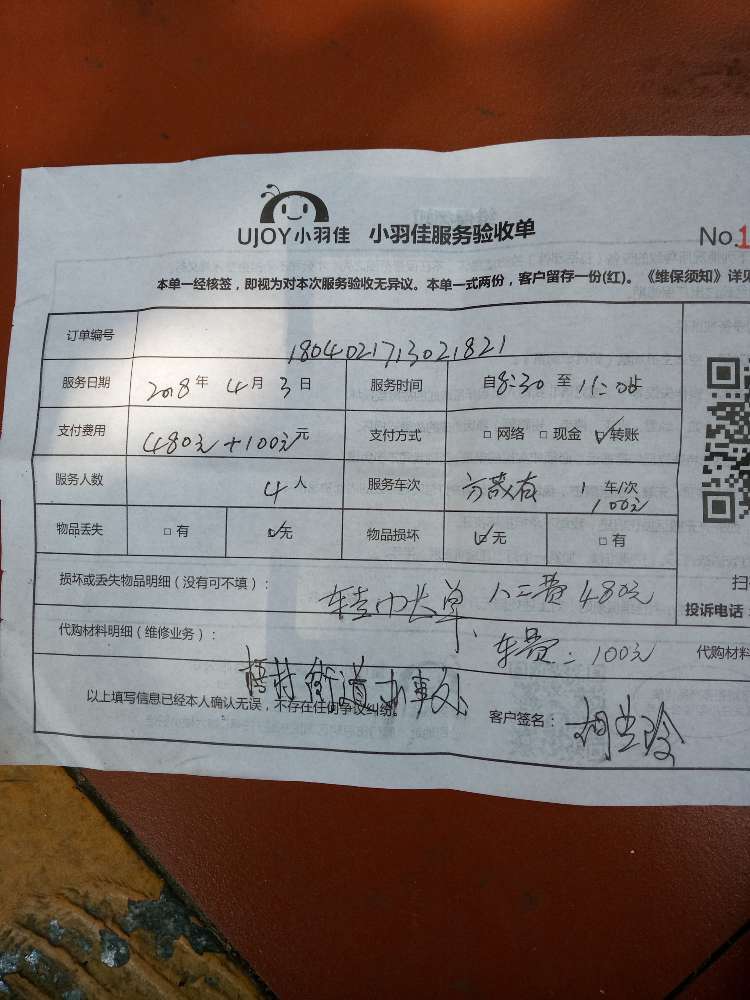 UJOY小羽佳 小羽佳服务验收单
No.1
本单一经核签，即视为对本次服务验收无异议。本单一式两份，客户留存一份(红)。《维保须知》详见
订单编号 1804021713021821
服务日期 2018年 4月 3日 服务时间 自8:30 至 11:05
支付费用 480元+100元元 支付方式 □ 网络 □ 现金 ☑转账
服务人数 4人 服务车次 1 车/次
100元
物品丢失 □ 有 ☑无 物品损坏 ☑无 □ 有
损坏或丢失物品明细（没有可不填）： 人工费480元
扫
投诉电话：
代购材料明细（维修业务）： 车费：100元 代购材料
梧村街道办事处
以上填写信息已经本人确认无误，不存在任何争议纠纷。 客户签名：